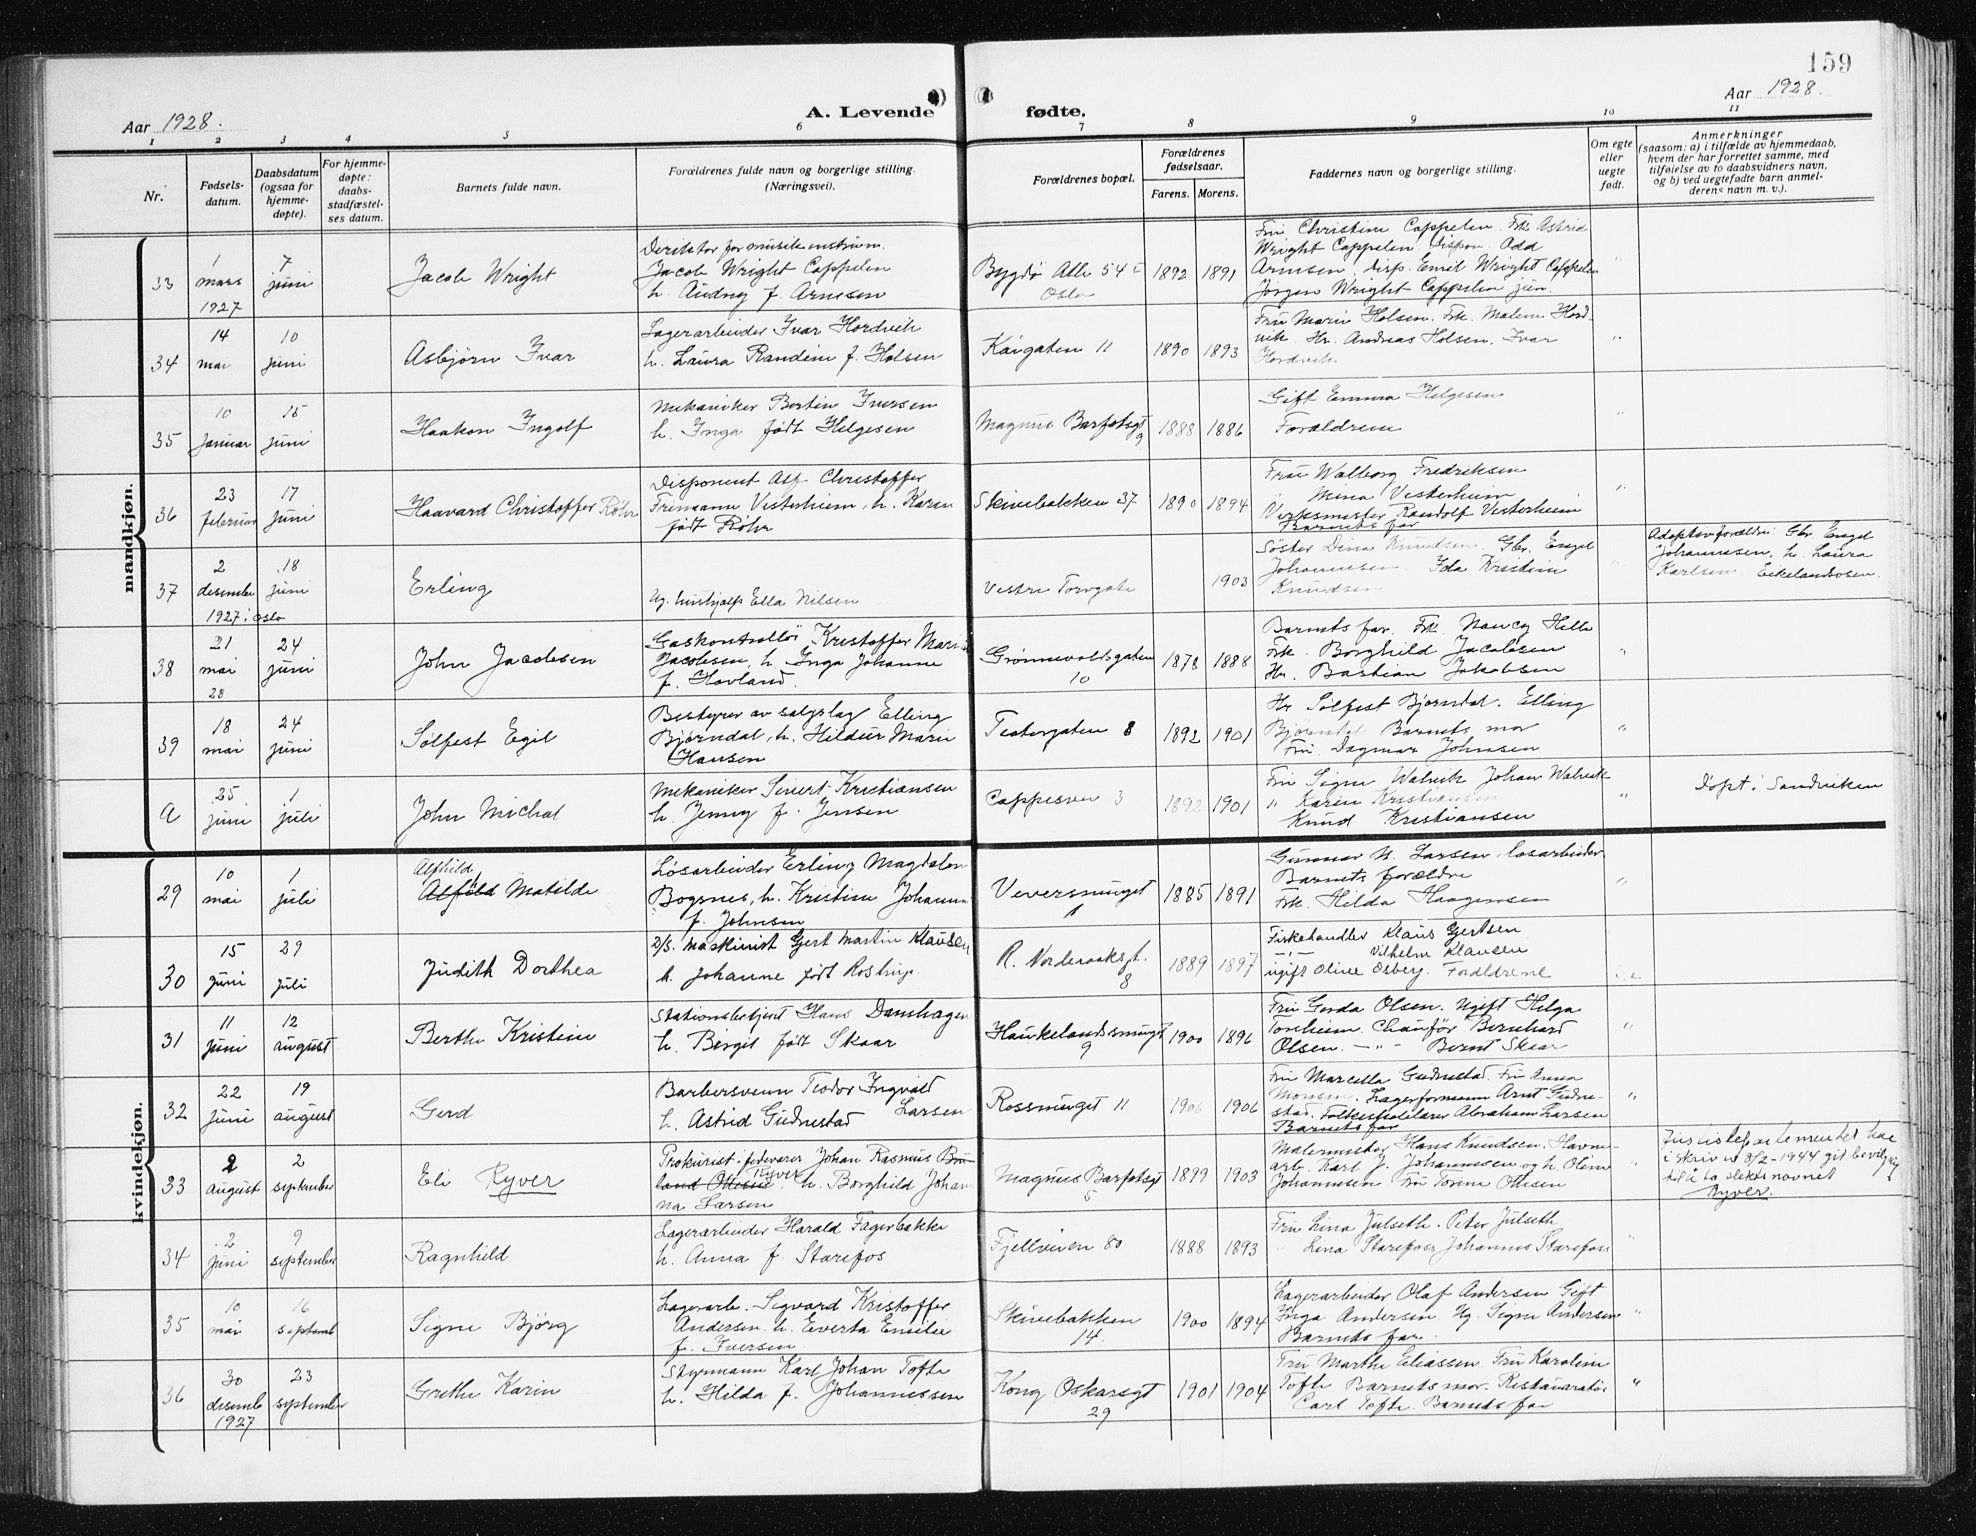 159
Aar 1928.
A. Levende fødte.
Aar 1928.
1 2 3 4 5 6 7 8 9 10 11
Nr.
Fødsels-
datum.
Daabsdatum
(ogsaa for
hjemme-
døpte).
For hjemme-
døpte:
daabs-
stadfæstel-
ses datum.
Barnets fulde navn.
Forældrenes fulde navn og borgerlige stilling.
(Næringsvei).
Forældrenes bopæl.
Forældrenes
fødselsaar.
Farens. Morens.
Faddernes navn og borgerlige stilling.
Om egte
eller
uegte
født.
Anmerkninger
(saasom: a) i tilfælde av hjemmedaab,
hvem der har forrettet samme, med
tilføielse av to daabsvidners navn,
og b) ved uegtefødte barn anmel-
derens navn m. v.).
mandkjøn.
33
1
mars
1927
7
juni
Jacob Wright
Deriktør for musik instrum.
Jacob Wright Cappelen
h. Audny f. Arnesen
Bygdø Alle 54
Oslo
1892 1891
Fru Christine Cappelen. Frk Astrid
Wright Cappelen. Dispon. Odd
Arnesen. disp. Emil Wright Cappelen
Jørgen Wright Cappelen jun.
"
34
14
mai
10
juni
Asbjørn Ivar
Lagerarbeider Ivar Hordvik
h. Laura Randine f. Holsen
Kaigaten 11
1890 1893
Fru Marie Holsen. Frk. Malene Hord-
vik. Hr. Andreas Holsen. Ivar
Hordvik.
"
35
10
Januar
15
juni
Haakon Ingolf
Mekaniker Bertin Iversen
h. Inga født Helgesen
Magnus Barfotsgt
9
1888 1886
Gift Emma Helgesen
Forældrene
"
36
23
februar
17
juni
Haavard Christoffer Röhr
Disponent Alf Christoffer
Frimann Vesterheim, h. Karin
født Röhr
Skivebakken 37
1890 1894
Frau Walborg Fredriksen
" Mina Vesterheim
Verksmester Randolf Vesterheim
Barnets far
"
37
2
desember
1927 i Oslo
18
juni
Erling
Ug. hushjelp Ella Nilsen
Vestre Torvgate
1903
Søster Dina Knudsen. Gbr. Engel
Johannesen. Ida Kristine
Knudsen
"
Adoptivforældre: Gbr. Engel
Johannesen, h. Laura
Karlsen. Eikelandsosen.
38
21
mai
28
24
juni
John Jacobsen
Gaskontrollør Kristoffer Marius
Jacobsen, h. Inga Johanne
f. Hovland.
Grønnevoldsgaten
10
1878 1888
Barnets far. Frk. Nancy Hille
Frk. Borghild Jacobsen
Hr. Bastian Jakobsen
"
39
18
mai
24
juni
Sølfest Egil
Bestyrer av salgslag Elling
Bjørndal, h. Hildur Marie
Hansen
Teatergaten 8
1892 1901
Hr Sølfest Bjørndal. Elling
Bjørndal Barnets mor
Fru Dagmar Johnsen
"
a
25
juni
1
juli
John Michal
Mekaniker Sivert Kristiansen
h. Jenny f. Jensen
Cappesvei 3
1892 1901
Fru Signe Walvik Johan Walvik
" Karin Kristiansen
Knud Kristiansen
"
Døpt i Sandviken
kvindekjøn.
29
10
mai
1
juli
Alfhild
Alfild Matilde
Løsarbeider Erling Magdalon
Bognes, h. Kristine Johanna
f. Johnsen
Veversmuget
1
1885 1891
Gunnar N. Larsen, løsarbeider
Barnets forældre
Frk. Hilda Haagensen
"
30
15
juni
29
juli
Judith Dorthea
D/S. maskinist Gert Martin Klausen
h. Johanne født Rostrup
R. Nordraaksgt.
8
1889 1897
Fiskehandler Klaus Gjertsen
—"— Vilhelm Klausen
ugift Olive Osberg. Forældrene
i. e
31
11
juni
12
august
Berthe Kristine
Stationsbetjent Hans Danshagen
h. Bergit født Skaar
Haukelandssmuget
9
1900 1896
Fru Gerda Olsen. Ugift Helga
Torsheim. Chauför Bernhard
Olsen. —"— Bernt Skaar
"
32
22
juni
19
august
Gerd
Barbersvenn Teodor Ingvald
h. Astrid Gudnestad Larsen
Rossmuget 11
1906 1906
Fru Marcella Gudnestad. Fru Anna
Monsen. Lagerformann Arnt Gudne-
stad. Abraham Larsen
Barnets far
"
33
2
august
2
september
Eli Ryver
Prokurist i fedevarer Johan Rasmus Bru-
land Ottesen Ryver h. Borghild Johan-
na Larsen
Magnus Barfotsgt
5
1899 1903
Malermester Hans Knudsen. Havne-
arb. Karl J. Johannesen og h. Oline
Johannesen. Fru Torine Ottesen
"
Justisdepartementet har
i skriv av 8/2-1944 git bevilgning
til å ta slektsnavnet
Ryver.
34
2
juni
9
september
Ragnhild
Lagerarbeider Harald Fagerbakke
h. Anna f Starefos
Fjellveien 80
1888 1893
Fru Lina Julseth. Peter Julseth
" Lina Starefoss Johannes Starefoss
"
35
10
mai
16
septemb
Signe Bjørg
Lagerarb. Sigvard Kristoffer
Andersen h. Everta Emilie
f. Iversen
Skivebakken
14.
1900 1894
Lagerarbeider Olaf Andersen Gift
Inga Andersen Ug. Signe Andersen
Barnets far.
"
36
30
desemb
1927
23
september
Grethe Karin
Styrmann Karl Johan Tofte
h. Hilda f. Johannessen
Kong Oskarsgt
29
1901 1904
Fru Marthe Eliassen. Fru Karoline
Tofte Barnets mor. Restauratør
Carl Tofte. Barnets far
"